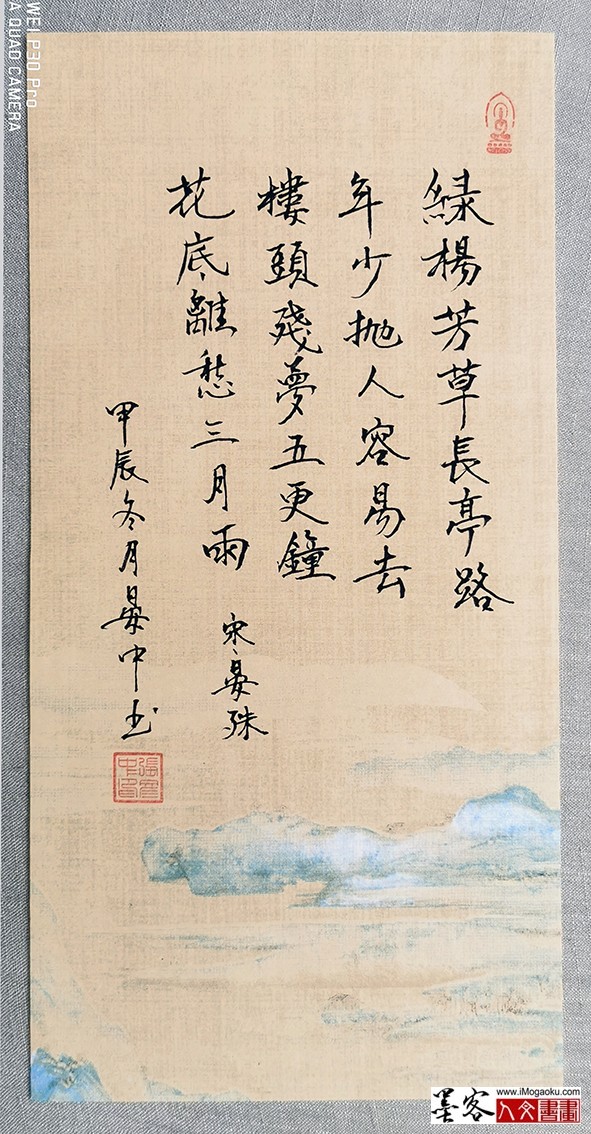 綠楊芳草長亭路
年少拋人容易去
樓頭殘夢五更鐘
花底離愁三月雨
宋晏殊
甲辰冬月晏中书
WEI P30 Pro
A QUAD CAMERA
www.iMogaoku.com
墨客
人文書畫